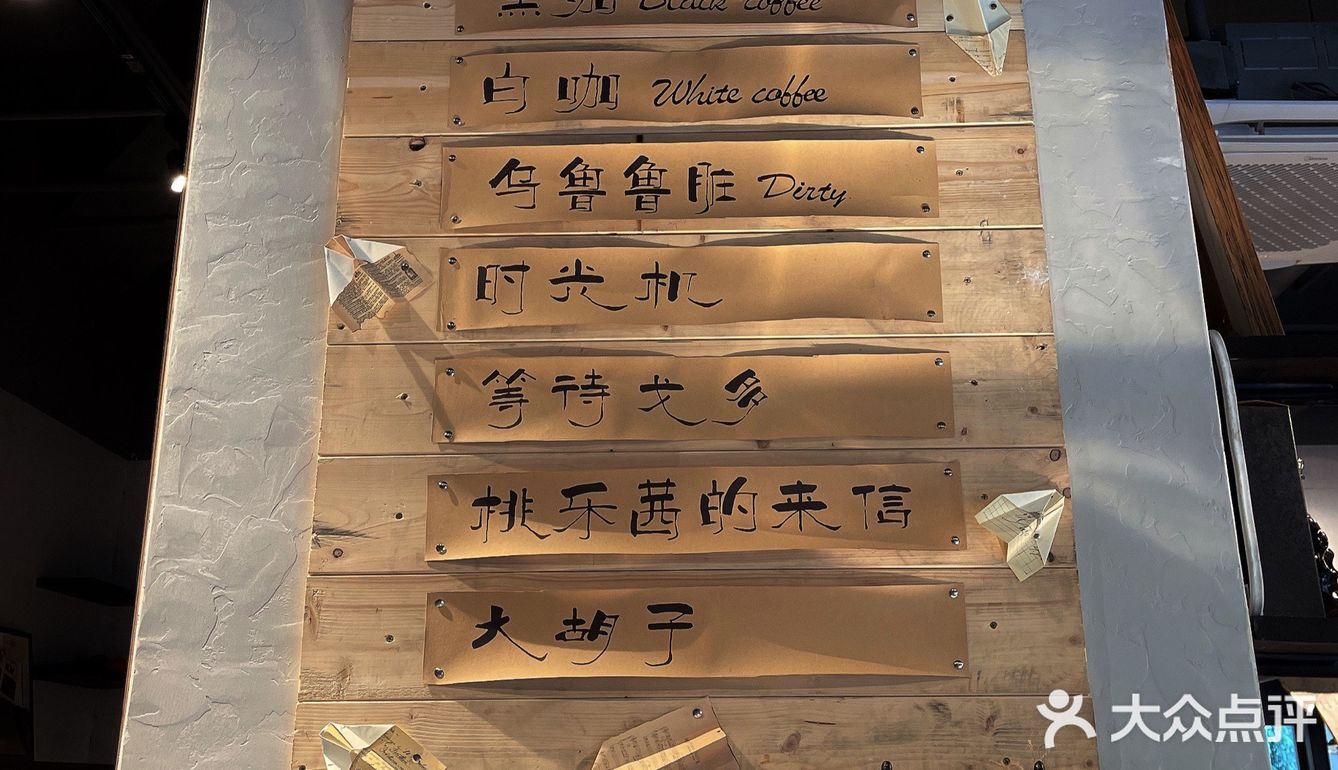 黑咖 Black coffee
白咖 White coffee
乌鲁鲁脏 Dirty
时光机
等待戈多
桃乐茜的来信
大胡子
大众点评